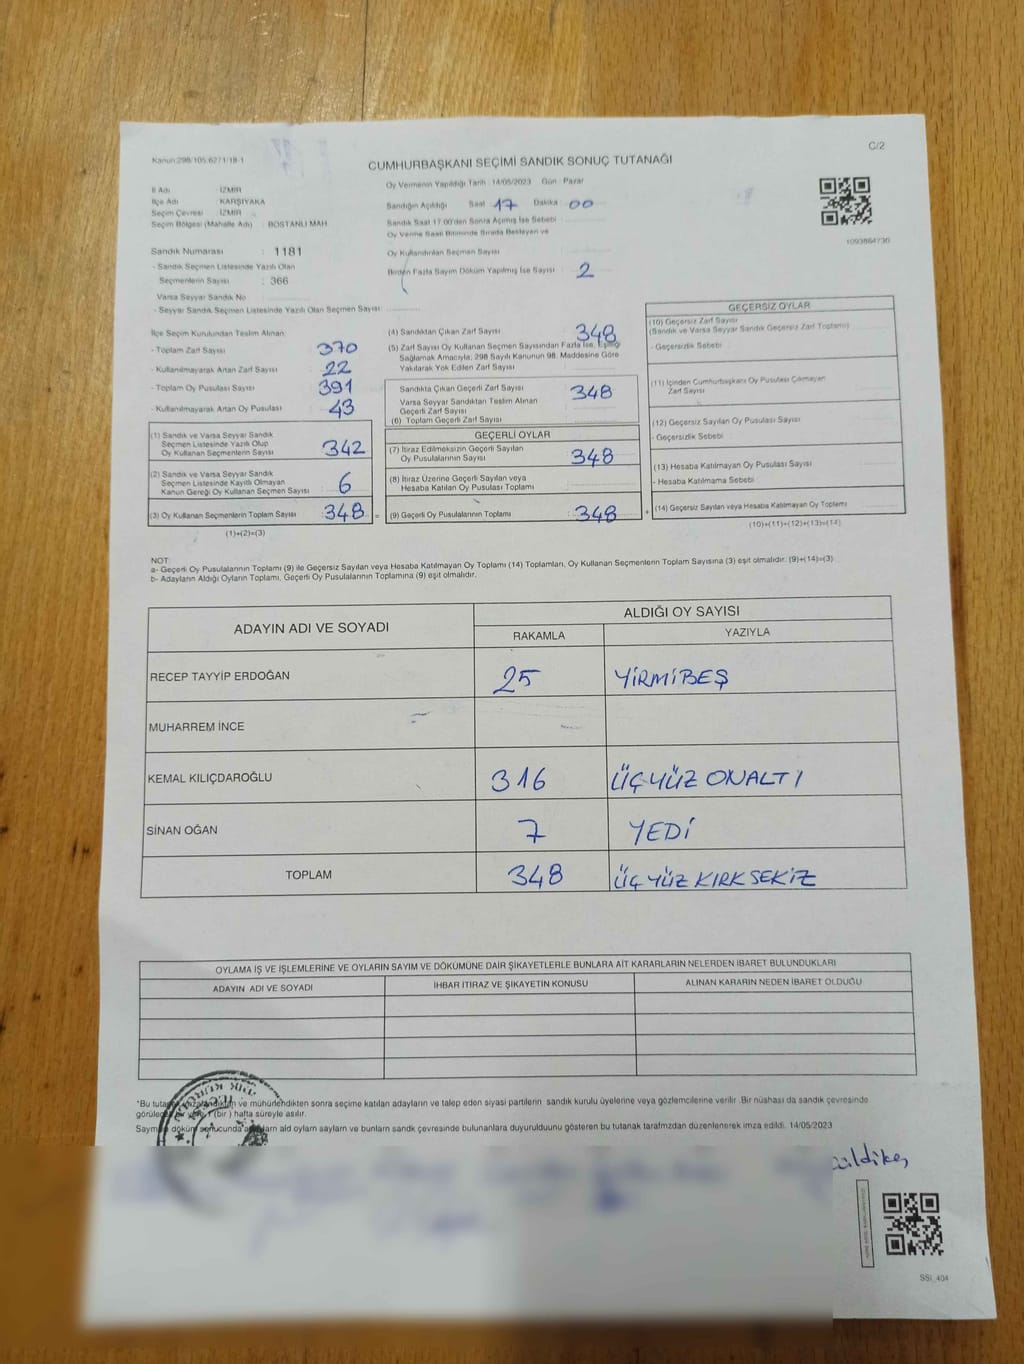 Kanun:298/105,6271/18-1
C/2
CUMHURBAŞKANI SEÇİMİ SANDIK SONUÇ TUTANAĞI
İl Adı İZMİR
İlçe Adı KARŞIYAKA
Seçim Çevresi İZMİR
Seçim Bölgesi (Mahalle Adı) : BOSTANLI MAH.
Oy Vermenin Yapıldığı Tarih : 14/05/2023 Gün : Pazar
Sandığın Açıldığı Saat 17 Dakika 00
Sandık Saat 17.00'den Sonra Açılmış İse Sebebi
Oy Verme Saati Bitiminde Sırada Bekleyen ve
Oy Kullandırılan Seçmen Sayısı
Birden Fazla Sayım Döküm Yapılmış İse Sayısı 2
1093864730
Sandık Numarası : 1181
- Sandık Seçmen Listesinde Yazılı Olan
Seçmenlerin Sayısı : 366
Varsa Seyyar Sandık No
- Seyyar Sandık Seçmen Listesinde Yazılı Olan Seçmen Sayısı
İlçe Seçim Kurulundan Teslim Alınan:
- Toplam Zarf Sayısı 370
- Kullanılmayarak Artan Zarf Sayısı 22
- Toplam Oy Pusulası Sayısı 391
- Kullanılmayarak Artan Oy Pusulası 43
(1) Sandık ve Varsa Seyyar Sandık
Seçmen Listesinde Yazılı Olup
Oy Kullanan Seçmenlerin Sayısı 342
(2) Sandık ve Varsa Seyyar Sandık
Seçmen Listesinde Kayıtlı Olmayan
Kanun Gereği Oy Kullanan Seçmen Sayısı 6
(3) Oy Kullanan Seçmenlerin Toplam Sayısı 348
(1)+(2)=(3)
(4) Sandıktan Çıkan Zarf Sayısı 348
(5) Zarf Sayısı Oy Kullanan Seçmen Sayısından Fazla İse, Eşitliği
Sağlamak Amacıyla; 298 Sayılı Kanunun 98. Maddesine Göre
Yakılarak Yok Edilen Zarf Sayısı
Sandıkta Çıkan Geçerli Zarf Sayısı 348
Varsa Seyyar Sandıktan Teslim Alınan
Geçerli Zarf Sayısı
(6) Toplam Geçerli Zarf Sayısı
GEÇERLİ OYLAR
(7) İtiraz Edilmeksizin Geçerli Sayılan
Oy Pusulalarının Sayısı 348
(8) İtiraz Üzerine Geçerli Sayılan veya
Hesaba Katılan Oy Pusulası Toplamı
= (9) Geçerli Oy Pusulalarının Toplamı 348
GEÇERSİZ OYLAR
(10) Geçersiz Zarf Sayısı
(Sandık ve Varsa Seyyar Sandık Geçersiz Zarf Toplamı)
- Geçersizlik Sebebi
(11) İçinden Cumhurbaşkanı Oy Pusulası Çıkmayan
Zarf Sayısı
(12) Geçersiz Sayılan Oy Pusulası Sayısı
- Geçersizlik Sebebi
(13) Hesaba Katılmayan Oy Pusulası Sayısı
- Hesaba Katılmama Sebebi
+ (14) Geçersiz Sayılan veya Hesaba Katılmayan Oy Toplamı
(10)+(11)+(12)+(13)=(14)
NOT:
a- Geçerli Oy Pusulasının Toplamı (9) ile Geçersiz Sayılan veya Hesaba Katılmayan Oy Toplamı (14) Toplamları, Oy Kullanan Seçmenlerin Toplam Sayısına (3) eşit olmalıdır. (9)+(14)=(3)
b- Adayların Aldığı Oyların Toplamı, Geçerli Oy Pusulalarının Toplamına (9) eşit olmalıdır.
ADAYIN ADI VE SOYADI ALDIĞI OY SAYISI
RAKAMLA YAZIYLA
RECEP TAYYİP ERDOĞAN 25 YİRMİBEŞ
MUHARREM İNCE
KEMAL KILIÇDAROĞLU 316 ÜÇYÜZ ONALTI
SİNAN OĞAN 7 YEDİ
TOPLAM 348 ÜÇYÜZ KIRKSEKİZ
OYLAMA İŞ VE İŞLEMLERİNE VE OYLARIN SAYIM VE DÖKÜMÜNE DAİR ŞİKAYETLERLE BUNLARA AİT KARARLARIN NELERDEN İBARET BULUNDUKLARI
ADAYIN ADI VE SOYADI İHBAR İTİRAZ VE ŞİKAYETİN KONUSU ALINAN KARARIN NEDEN İBARET OLDUĞU
*Bu ve mühürlendikten sonra seçime katılan adayların ve talep eden siyasi partilerin sandık kurulu üyelerine veya gözlemcilerine verilir .Bir nüshası da sandık çevresinde
1 (bir ) hafta süreyle asılır.
ald oylarn saylarn ve bunlarn sandk çevresinde bulunanlara duyurulduunu gösteren bu tutanak tarafmzdan düzenlenerek imza edildi. 14/05/2023
SSI_404